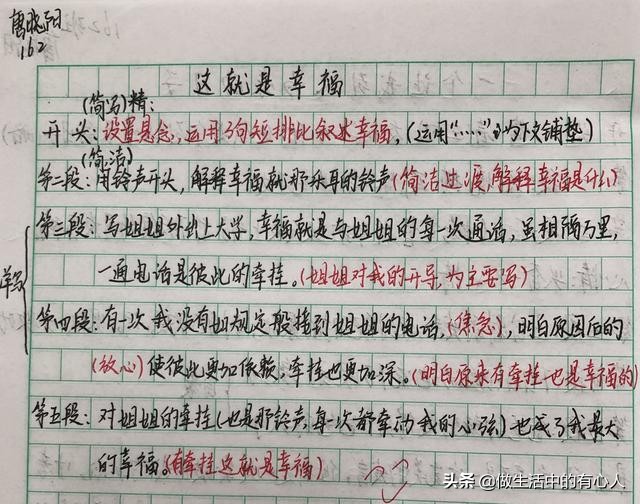 唐晓阳
162
这就是幸福
(简写)精:
开头:设置悬念,运用3句短排比叙述幸福,(运用"……"为下文铺垫)
(简洁)
第二段:用铃声开头,解释幸福就那乐耳的铃声(简洁过渡,解释幸福是什么)
第三段:写姐姐外出上大学,幸福就是与姐姐的每一次通话,虽相隔万里,
详写
一通电话是彼此的牵挂。(姐姐对我的开导,为主要写)
第四段:有一次我没有如规定般接到姐姐的电话,(焦急),明白原因后的
(放心)使彼此更加依赖,牵挂也更加深。(明白原来有牵挂也是幸福的)
第五段:对姐姐的牵挂(也是那铃声,每一次都牵动我的心弦)也成了我最大
的幸福。(有牵挂这就是幸福)
头条@做生活中的有心人